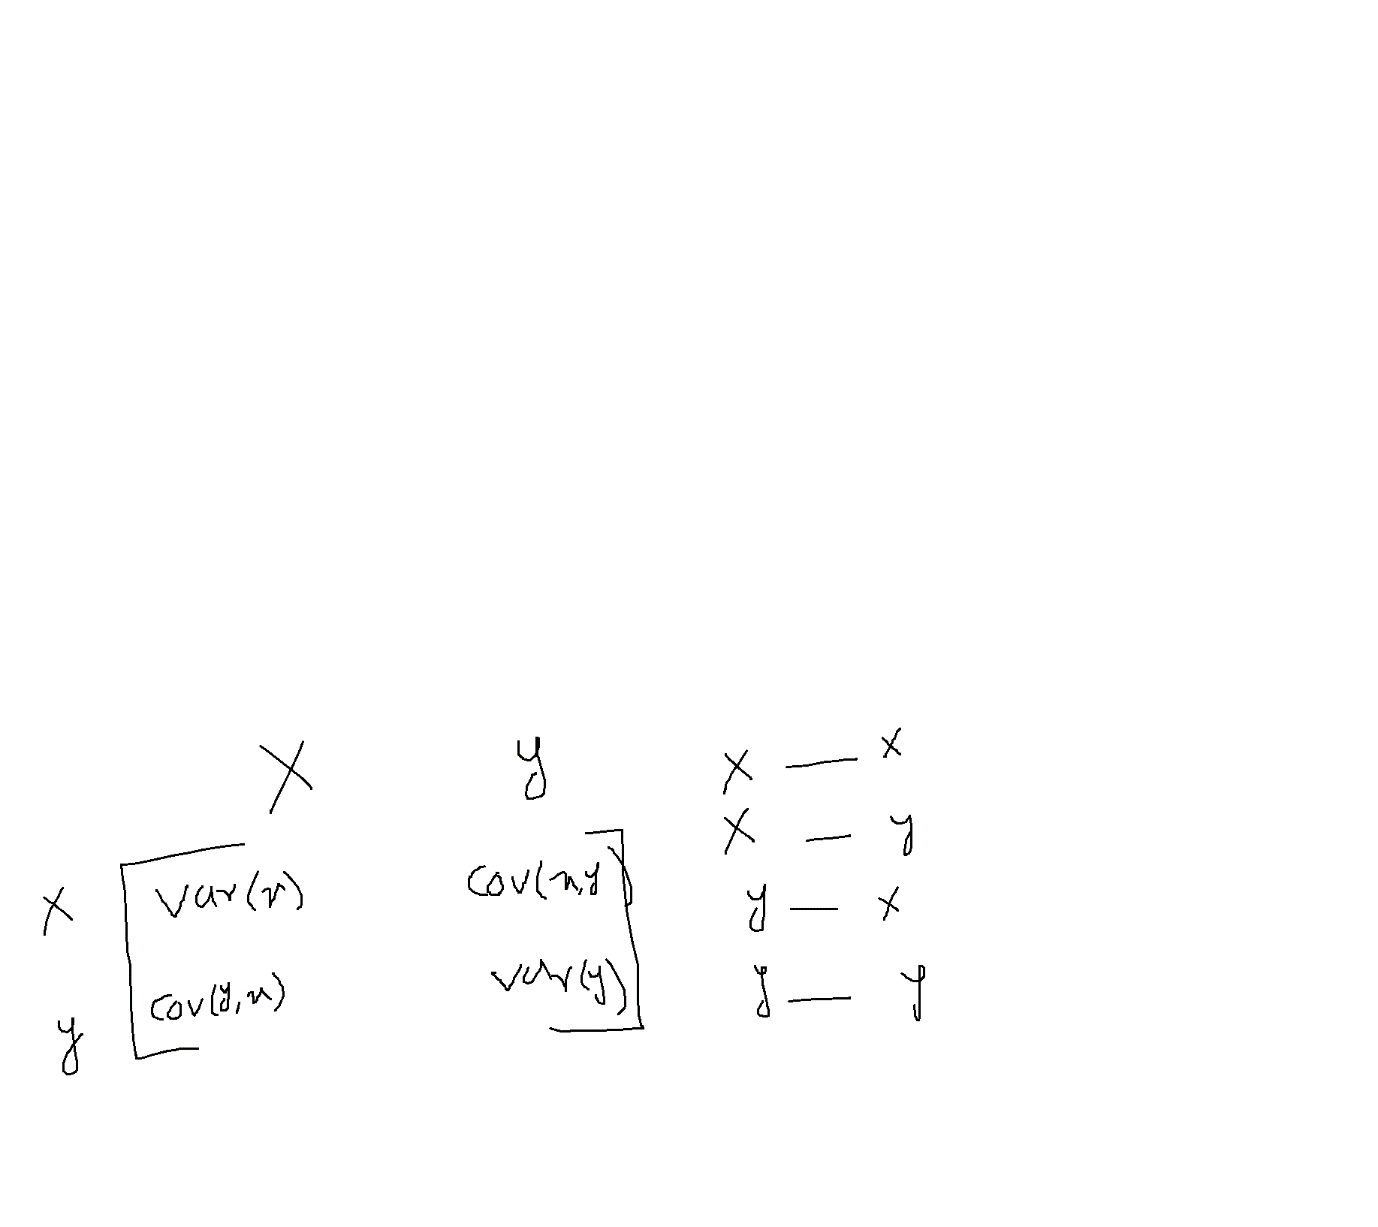 X y
x var(x) cov(x,y)
y cov(y,x) var(y)
x — x
x — y
y — x
y — y